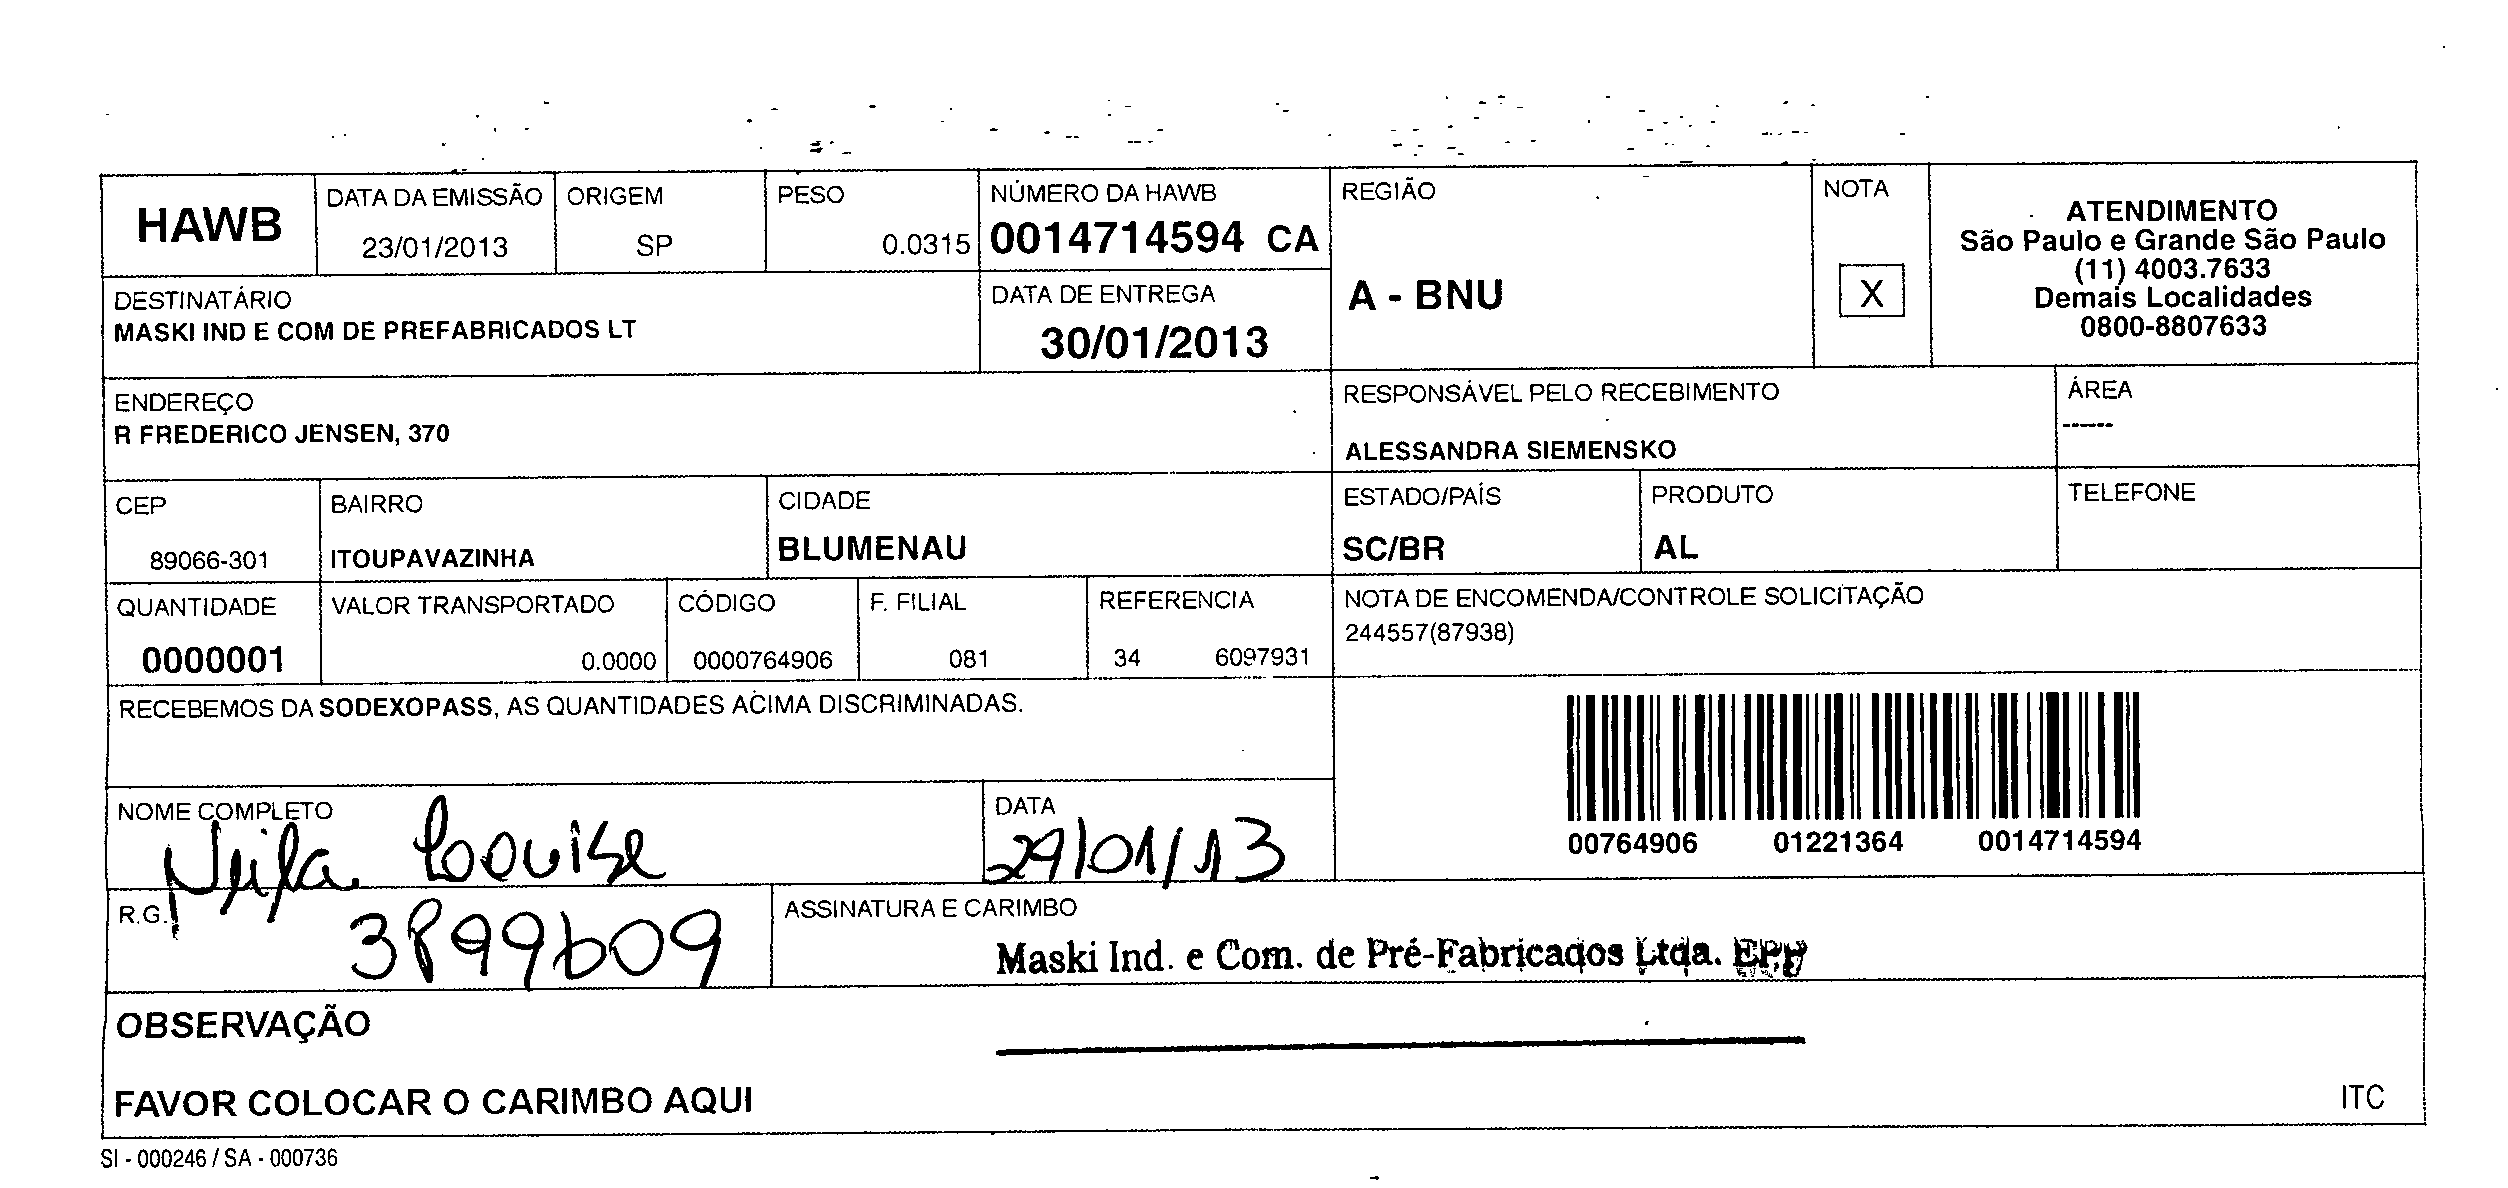 HAWB
DATA DA EMISSÃO
23/01/2013
ORIGEM
SP
PESO
0.0315
NÚMERO DA HAWB
0014714594 CA
REGIÃO
A - BNU
NOTA
X
ATENDIMENTO
São Paulo e Grande São Paulo
(11) 4003.7633
Demais Localidades
0800-8807633
DESTINATÁRIO
MASKI IND E COM DE PREFABRICADOS LT
DATA DE ENTREGA
30/01/2013
ENDEREÇO
R FREDERICO JENSEN, 370
RESPONSÁVEL PELO RECEBIMENTO
ALESSANDRA SIEMENSKO
ÁREA
------
CEP
89066-301
BAIRRO
ITOUPAVAZINHA
CIDADE
BLUMENAU
ESTADO/PAÍS
SC/BR
PRODUTO
AL
TELEFONE
QUANTIDADE
0000001
VALOR TRANSPORTADO
0.0000
CÓDIGO
0000764906
F. FILIAL
081
REFERENCIA
34 6097931
NOTA DE ENCOMENDA/CONTROLE SOLICITAÇÃO
244557(87938)
RECEBEMOS DA SODEXOPASS, AS QUANTIDADES ACIMA DISCRIMINADAS.
00764906 01221364 0014714594
NOME COMPLETO
DATA
29/01/13
R.G.
3899609
ASSINATURA E CARIMBO
Maski Ind. e Com. de Pré-Fabricados Ltda. EPP
OBSERVAÇÃO
FAVOR COLOCAR O CARIMBO AQUI
ITC
SI - 000246 / SA - 000736